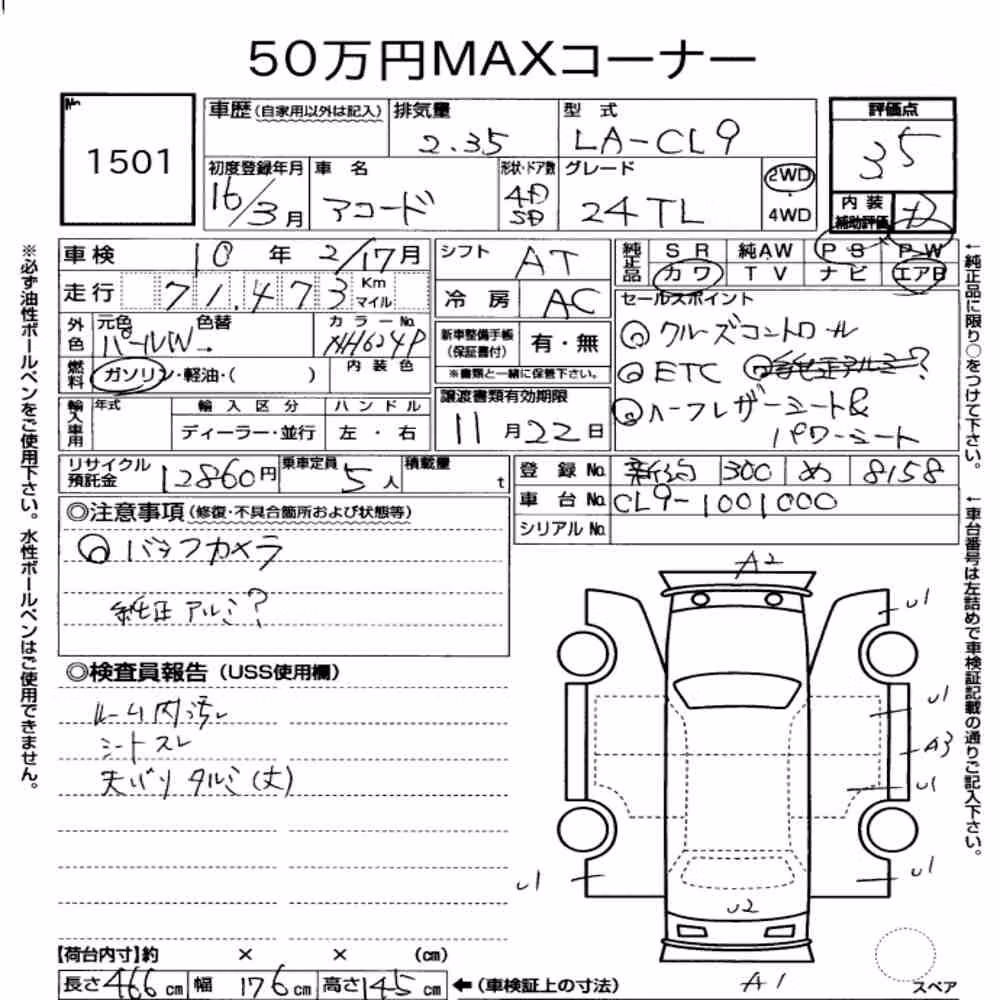 50万円MAXコーナー
No. 1501
車歴(自家用以外は記入) 排気量 2.35 型式 LA-CL9
評価点 35
初度登録年月 16/3月 車名 アコード 形状・ドア数 4D SD グレード 24TL 2WD ・ 4WD
内装補助評価 D
車検 10年2/17月 シフト AT 純正品 SR 純AW PS PW
カワ TV ナビ エアB
走行 71.473 Km マイル 冷房 AC
セールスポイント
外色 元色 パールW 色替 → カラーNo. NH624P
新車整備手帳(保証書付) 有・無
※書類と一緒に保管下さい。
◎クルーズコントロール
燃料 ガソリン・軽油・( ) 内装色
◎ETC ◎純正アルミ?
譲渡書類有効期限 11月22日
◎ハーフレザーシート&
パワーシート
輸入車用 年式 輸入区分 ハンドル
ディーラー・並行 左・右
リサイクル預託金 12860円 乗車定員 5人 積載量 t
登録No. 300 め 8158
車台No. CL9-1001000
シリアルNo.
◎注意事項(修復・不具合箇所および状態等)
◎バックカメラ
純正アルミ?
◎検査員報告(USS使用欄)
ルーム内汚レ
シートスレ
天バリタルミ(大)
A2
U1
U1
A3
U1
U1
U1
U2
A1
スペア
【荷台内寸】約 × × (cm)
長さ 466cm 幅 176cm 高さ 145cm ←(車検証上の寸法)
※必ず油性ボールペンをご使用下さい。水性ボールペンはご使用できません。
←純正品に限り○をつけて下さい。
←車台番号は左詰めで車検証記載の通りご記入下さい。